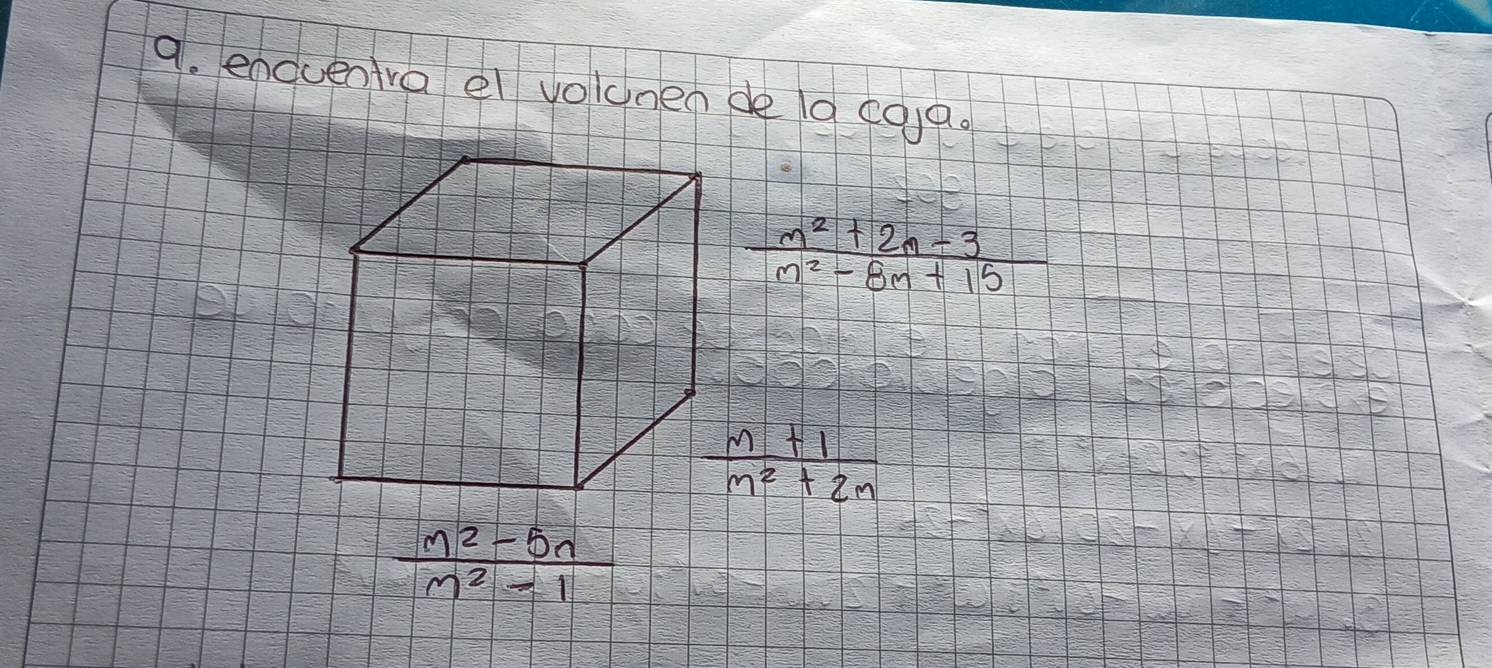 a. encuentra el volumen de la caja.
m² + 2m - 3
m² - 8m + 15
m + 1
m² + 2m
m² - 5m
m² - 1